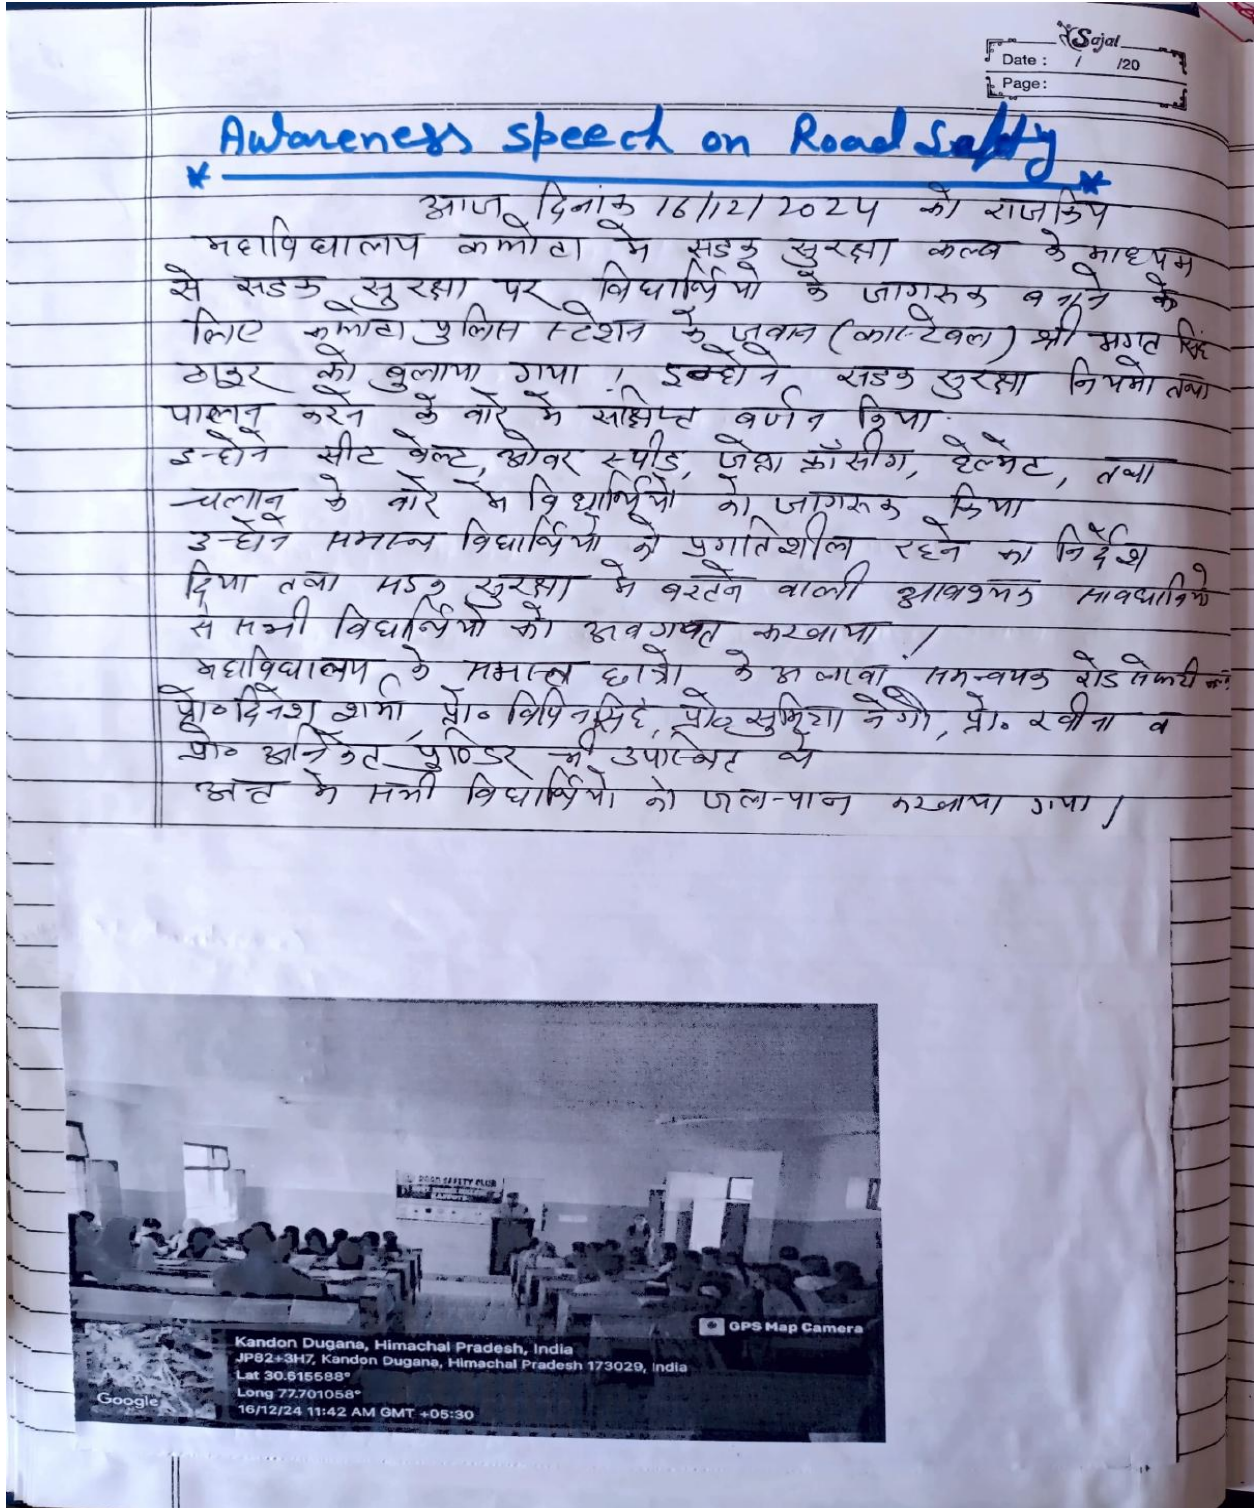 Sajal
Date : / /20
Page:
Awareness speech on Road Safety
आज दिनांक 16/12/2024 को राजकिय
महाविधालय कमरोटा मे सडक सुरक्षा कल्ब के माध्यम
से सडक सुरक्षा पर विधार्थियो के जागरुक बनाने के
लिए पुलिस स्टेशन के जवान (कास्टेबल) श्री भगत सिंह
ठाकुर को बुलाया गया ! इन्होने सडक सुरक्षा नियमो तथा
पालन करने के बारे मे संक्षिप्ट वर्णन किया
इन्होने सीट बेल्ट, ओवर स्पीड, जेब्रा क्रॉसीग, हेल्मेट, तथा
चलान के बारे मे विधार्थियो को जागरुक किया
इन्होने समास्त विधार्थियो को प्रगतिशील रहने का निर्देश
दिया तथा सडक सुरक्षा मे बरटने वाली आवश्यक सावधानियो
से सभी विधार्थियो को अवगत करवाया !
महाविधालय के समास्त छात्रो के अलावा समन्वयक रोड सेफ्टी
प्रो० दिनेश शर्मा, प्रो० विपिन सिंह, प्रो० सुमित्रा नेगी, प्रो० रवीना व
प्रो० अनिकेट पुण्डिर भी उपास्थित थे
अन्त मे सभी विधार्थियो को जल-पान करवाया गया /
ROAD SAFETY CLUB
GPS Map Camera
Kandon Dugana, Himachal Pradesh, India
JP82+3H7, Kandon Dugana, Himachal Pradesh 173029, India
Lat 30.615588°
Long 77.701058°
16/12/24 11:42 AM GMT +05:30
Google